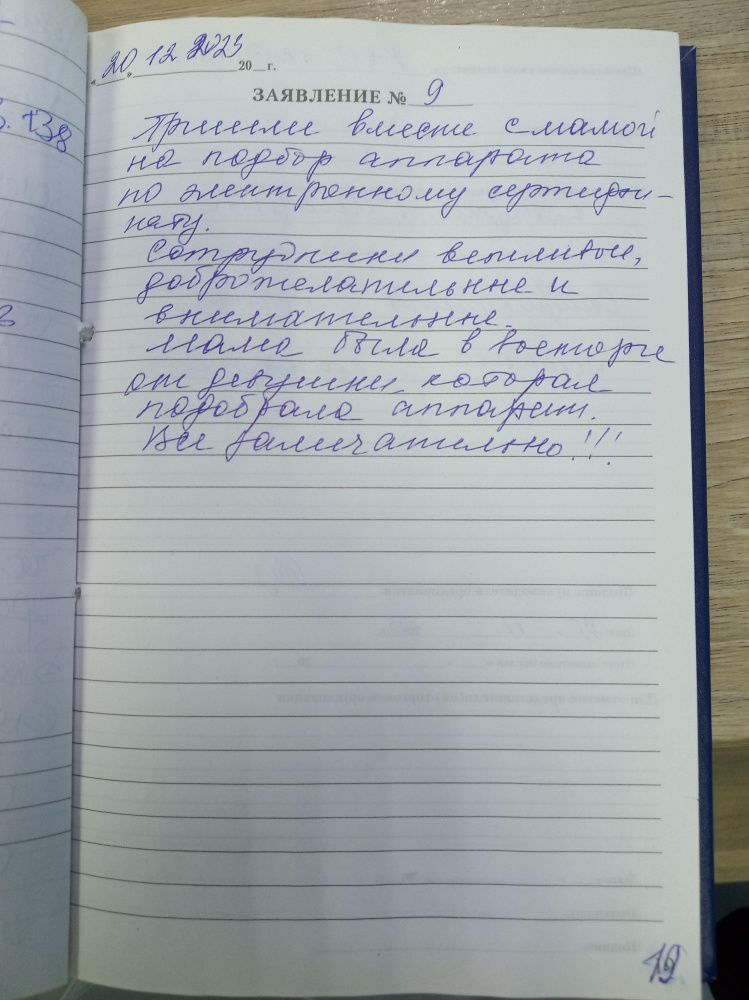 « 20 » 12 2023 20 г.
ЗАЯВЛЕНИЕ № 9
Пришли вместе с мамой
на подбор аппарата
по электронному сертифи-
кату.
Сотрудники вежливые,
доброжелательные и
внимательные.
Мама была в восторге
от девушки, которая
подобрала аппарат.
Все замечательно!!!
138
12